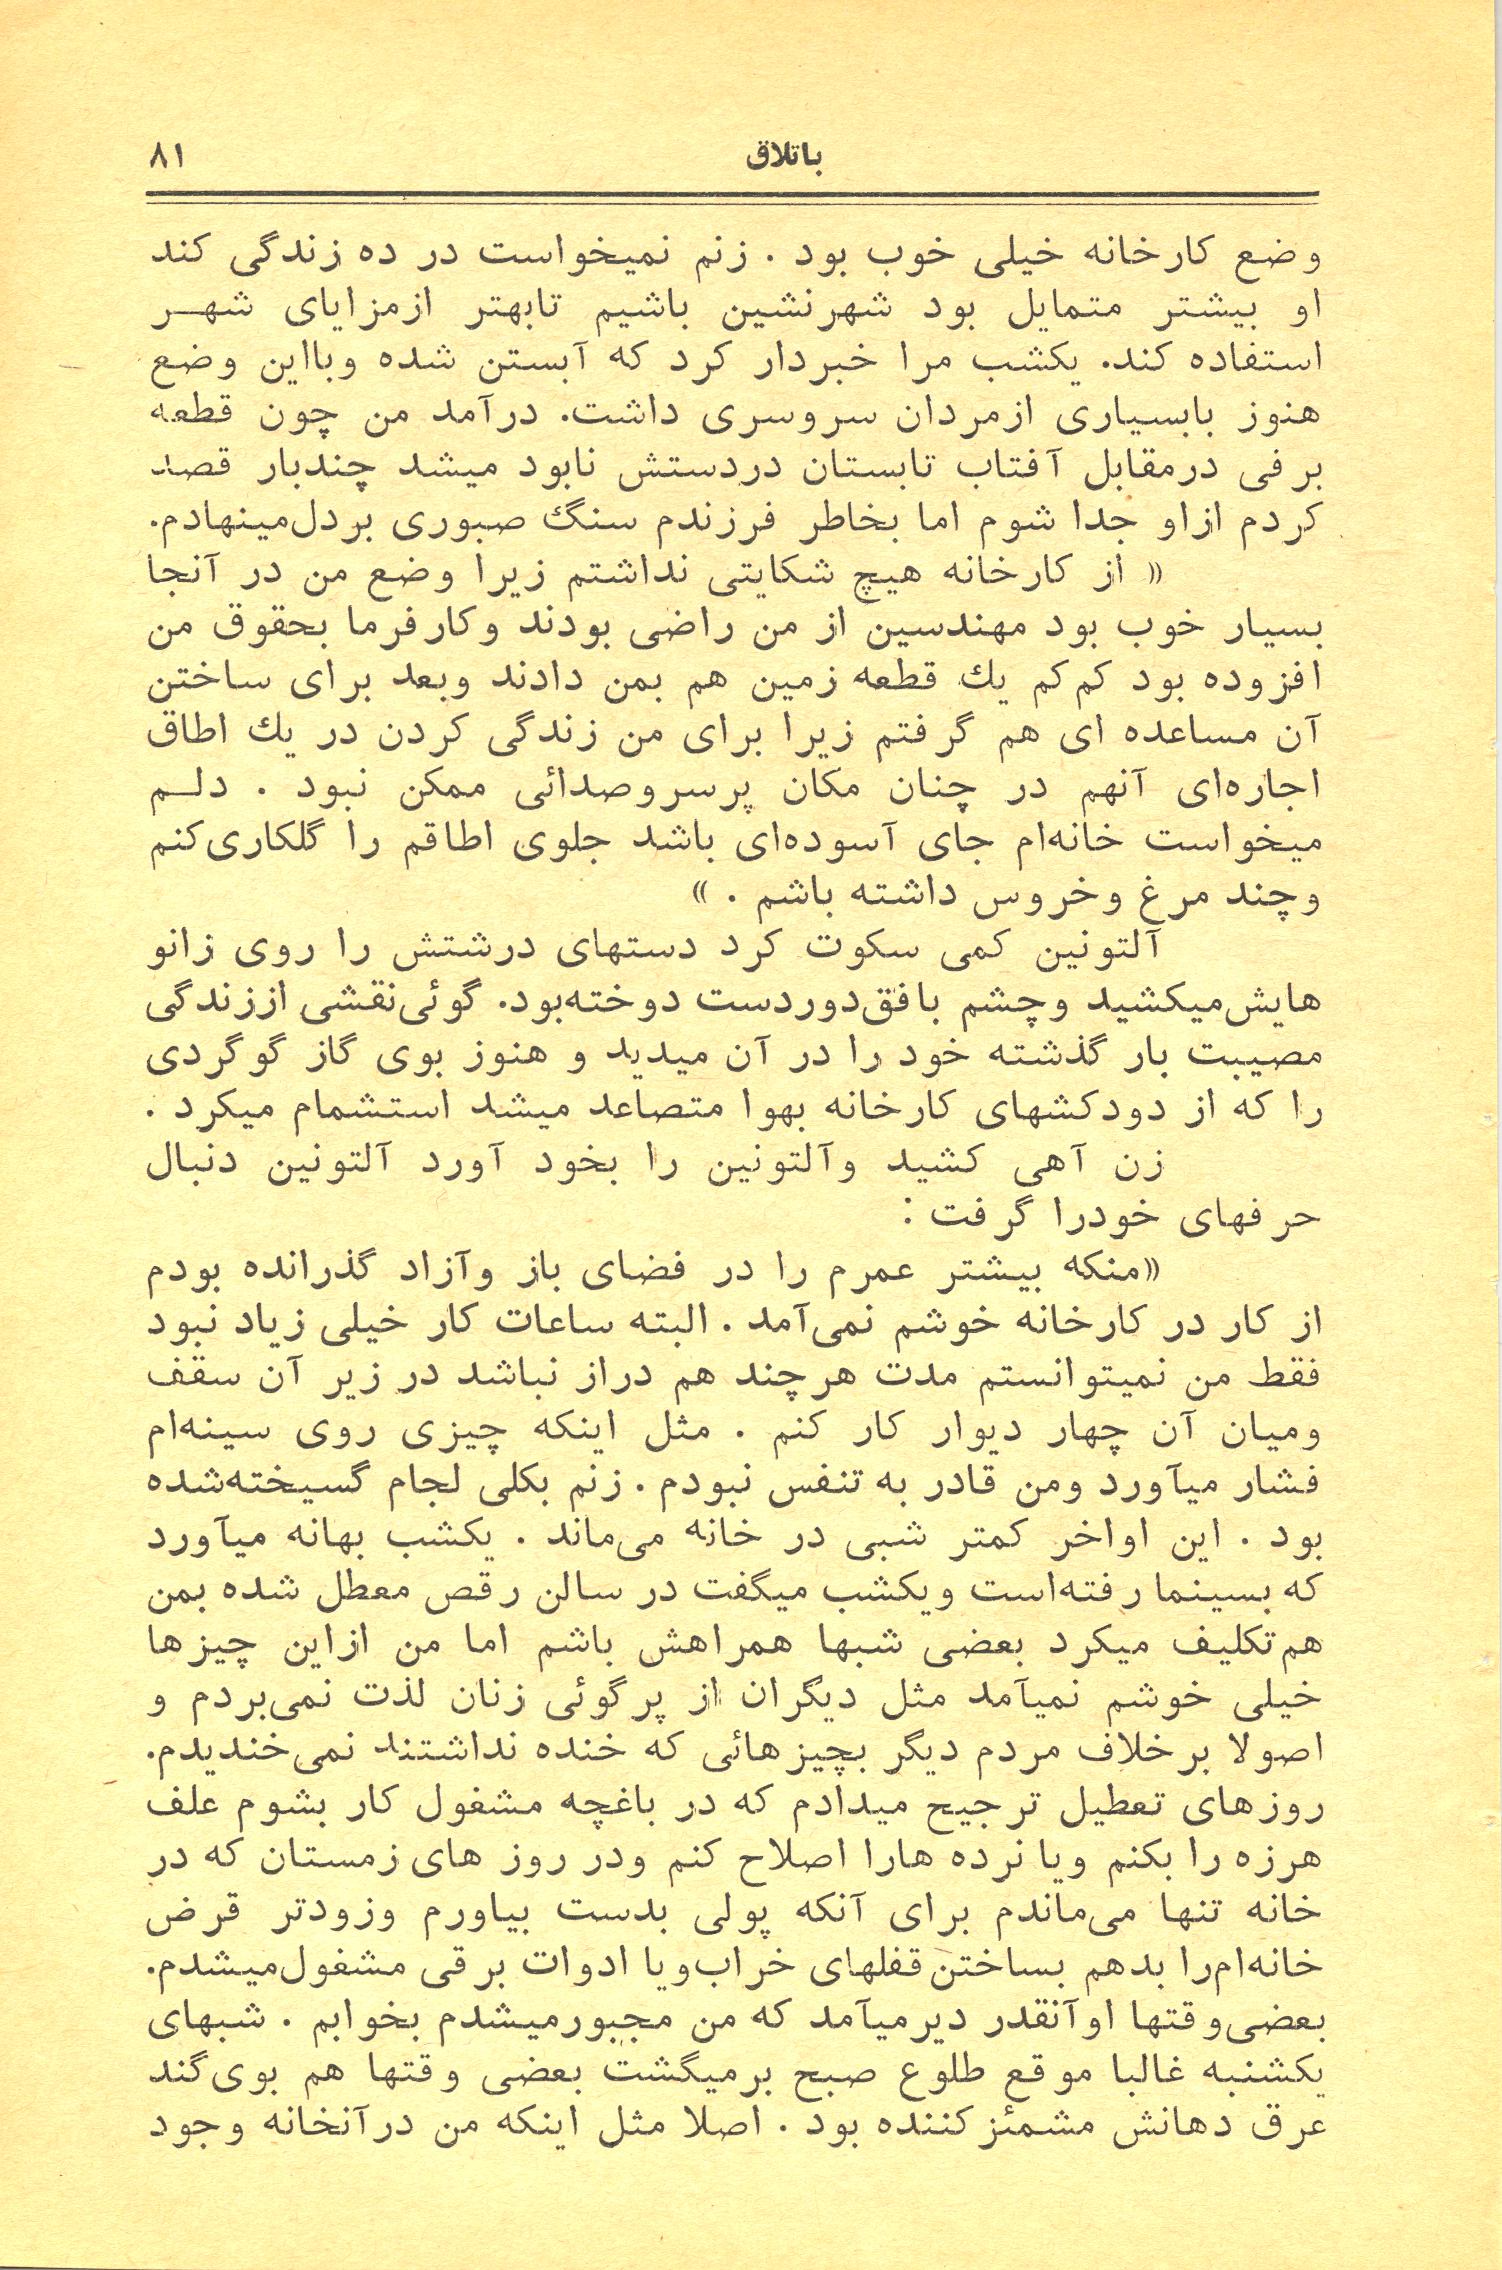 باتلاق ۸۱
وضع کارخانه خیلی خوب بود . زنم نمیخواست در ده زندگی کند
او بیشتر متمایل بود شهرنشین باشیم تابهتر ازمزایای شهر
استفاده کند. یکشب مرا خبردار کرد که آبستن شده وبااین وضع
هنوز بابسیاری ازمردان سروسری داشت. درآمد من چون قطعه
برفی درمقابل آفتاب تابستان دردستش نابود میشد چندبار قصد
کردم ازاو جدا شوم اما بخاطر فرزندم سنگ صبوری بردل‌مینهادم.
« از کارخانه هیچ شکایتی نداشتم زیرا وضع من در آنجا
بسیار خوب بود مهندسین از من راضی بودند وکارفرما بحقوق من
افزوده بود کم‌کم یك قطعه زمین هم بمن دادند وبعد برای ساختن
آن مساعده ای هم گرفتم زیرا برای من زندگی کردن در یك اطاق
اجاره‌ای آنهم در چنان مکان پرسروصدائی ممکن نبود . دلم
میخواست خانه‌ام جای آسوده‌ای باشد جلوی اطاقم را گلکاری‌کنم
وچند مرغ وخروس داشته باشم . »
آلتونین کمی سکوت کرد دستهای درشتش را روی زانو
هایش‌میکشید وچشم بافق‌دوردست دوخته‌بود. گوئی‌نقشی اززندگی
مصیبت بار گذشته خود را در آن میدید و هنوز بوی گاز گوگردی
را که از دودکشهای کارخانه بهوا متصاعد میشد استشمام میکرد .
زن آهی کشید وآلتونین را بخود آورد آلتونین دنبال
حرفهای خودرا گرفت :
«منکه بیشتر عمرم را در فضای باز وآزاد گذرانده بودم
از کار در کارخانه خوشم نمی‌آمد . البته ساعات کار خیلی زیاد نبود
فقط من نمیتوانستم مدت هرچند هم دراز نباشد در زیر آن سقف
ومیان آن چهار دیوار کار کنم . مثل اینکه چیزی روی سینه‌ام
فشار میآورد ومن قادر به تنفس نبودم . زنم بکلی لجام گسیخته‌شده
بود . این اواخر کمتر شبی در خانه می‌ماند . یکشب بهانه میآورد
که بسینما رفته‌است ویکشب میگفت در سالن رقص معطل شده بمن
هم‌تکلیف میکرد بعضی شبها همراهش باشم اما من ازاین چیزها
خیلی خوشم نمیآمد مثل دیگران از پرگوئی زنان لذت نمی‌بردم و
اصولا برخلاف مردم دیگر بچیزهائی که خنده نداشتند نمی‌خندیدم.
روزهای تعطیل ترجیح میدادم که در باغچه مشغول کار بشوم علف
هرزه را بکنم ویا نرده هارا اصلاح کنم ودر روز های زمستان که در
خانه تنها می‌ماندم برای آنکه پولی بدست بیاورم وزودتر قرض
خانه‌ام‌را بدهم بساختن قفلهای خراب‌ویا ادوات برقی مشغول‌میشدم.
بعضی‌وقتها اوآنقدر دیرمیآمد که من مجبورمیشدم بخوابم . شبهای
یکشنبه غالبا موقع طلوع صبح برمیگشت بعضی وقتها هم بوی‌گند
عرق دهانش مشمئزکننده بود . اصلا مثل اینکه من درآنخانه وجود